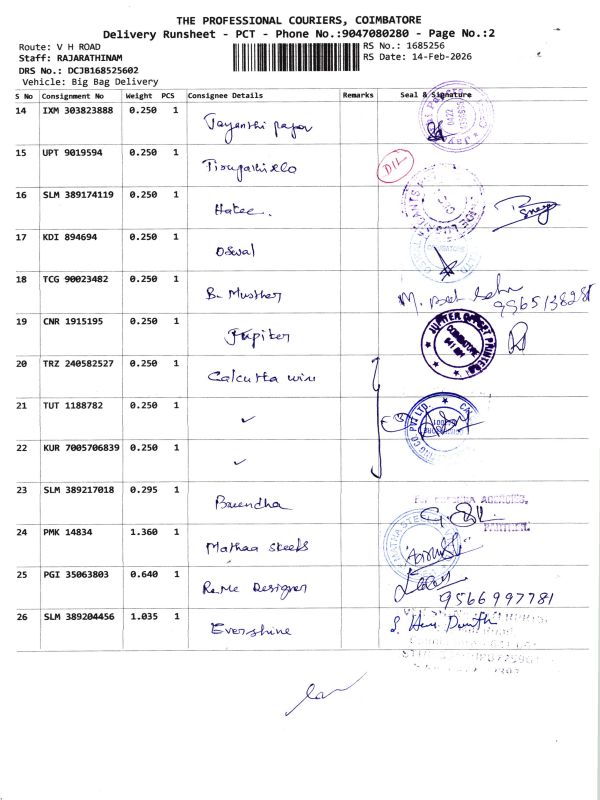 THE PROFESSIONAL COURIERS, COIMBATORE
Delivery Runsheet - PCT - Phone No.:9047080280 - Page No.:2
Route: V H ROAD
RS No.: 1685256
Staff: RAJARATHINAM
RS Date: 14-Feb-2026
DRS No.: DCJB168525602
Vehicle: Big Bag Delivery
S No Consignment No Weight PCS Consignee Details Remarks Seal & Signature
14 IXM 303823888 0.250 1 Jayanthi paper
15 UPT 9019594 0.250 1
16 SLM 389174119 0.250 1 Hatee.
17 KDI 894694 0.250 1 Oswal
18 TCG 90023482 0.250 1 B. Muther
9965138281
19 CNR 1915195 0.250 1 Jupiter
JUPITER OFFSET PRINTERS
COIMBATORE
20 TRZ 240582527 0.250 1 Calcutta wire
21 TUT 1188782 0.250 1 ✓
CO PVT LTD.
22 KUR 7005706839 0.250 1 ✓
23 SLM 389217018 0.295 1 Brendha
AGENCIES,
PARTNER.
24 PMK 14834 1.360 1 Mathaa steels
25 PGI 35063803 0.640 1 Re.Me Designer
9566997781
26 SLM 389204456 1.035 1 Evershine